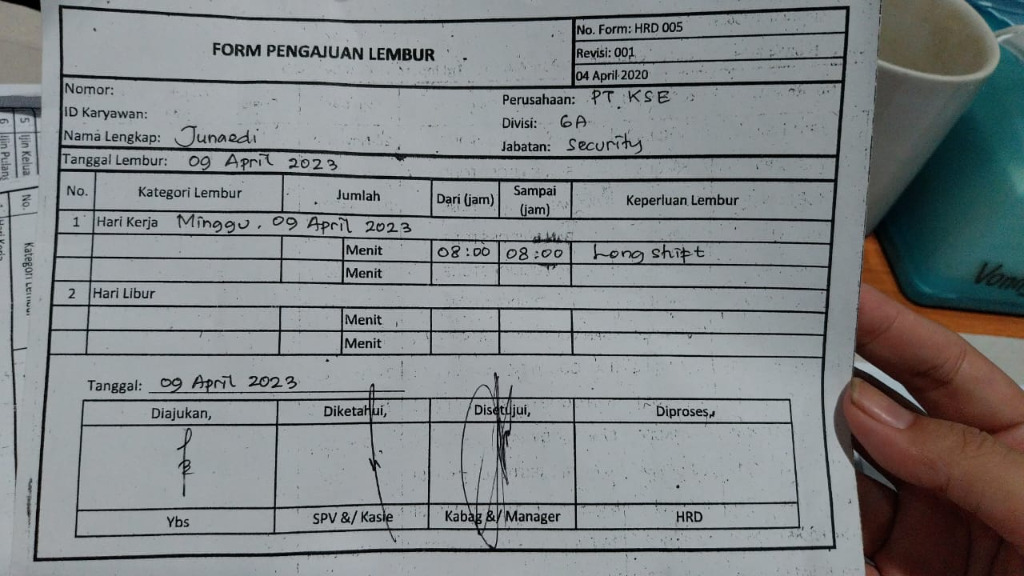 FORM PENGAJUAN LEMBUR
No. Form: HRD 005
Revisi: 001
04 April 2020
Nomor:
ID Karyawan:
Nama Lengkap: Junaedi
Perusahaan: PT. KSE
Divisi: 6A
Jabatan: Security
Tanggal Lembur: 09 April 2023
No. Kategori Lembur Jumlah Dari (jam) Sampai (jam) Keperluan Lembur
1 Hari Kerja Minggu, 09 April 2023
Menit 08:00 08:00 Long shift
Menit
2 Hari Libur
Menit
Menit
Tanggal: 09 April 2023
Diajukan, Diketahui, Disetujui, Diproses,
Ybs SPV &/ Kasie Kabag &/ Manager HRD
5 Ijin Kelua
6 Ijin Pulang
No.
Kategori Lembur
Vom